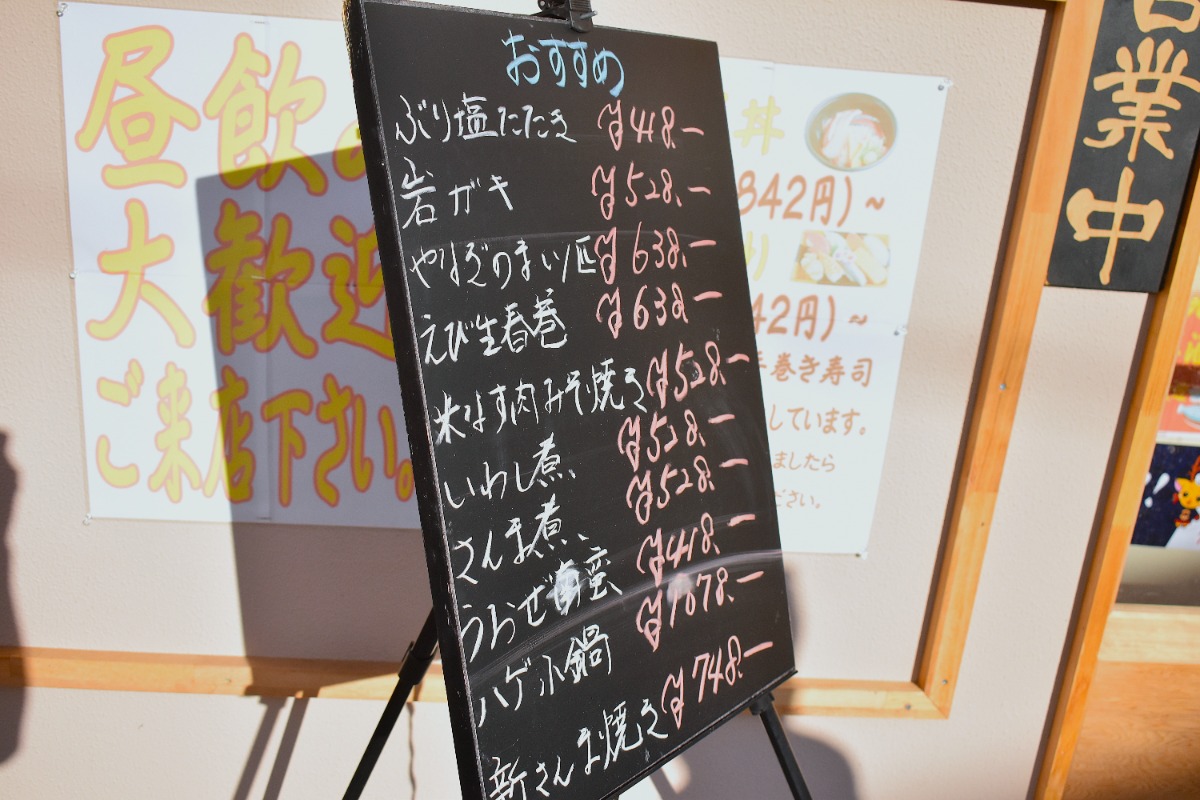 おすすめ
ぶり塩たたき ¥418.-
岩ガキ ¥528.-
やなぎのまい1匹 ¥638.-
えび生春巻 ¥638-
米なす肉みそ焼き ¥528.-
いわし煮、 ¥528.-
さんま煮、 ¥528.-
¥418.-
ハゲ小鍋 ¥1078.-
新さんま焼き ¥748.-
昼飲
大歓迎
ご来店下さい。
丼
842円)~
り
42円)~
手巻き寿司
しています。
ましたら
ださい。
営業中